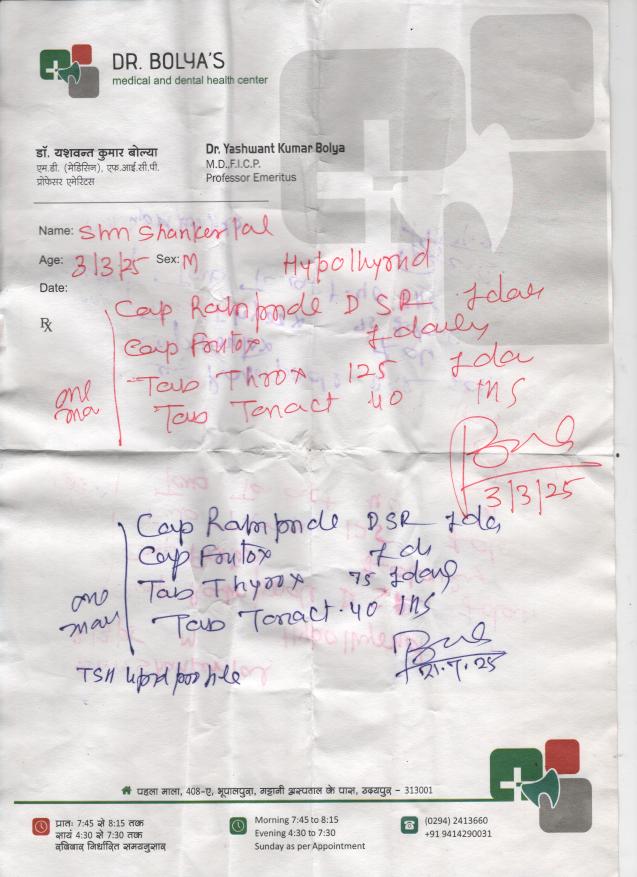 DR. BOLYA'S
medical and dental health center
डॉ. यशवन्त कुमार बोल्या
एम.डी. (मेडिसिन), एफ.आई.सी.पी.
प्रोफेसर एमेरिटस
Dr. Yashwant Kumar Bolya
M.D.,F.I.C.P.
Professor Emeritus
Name: Shri Shankerlal
Age: 3/3/25 Sex: M
Hypothyroid
Date:
Rx
Cap DSR
Cap
Tab Throx 125
Tab Tonact 40 1HS
one
3/3/25
Cap DSR
Cap
Tab Thyrox 75
Tab Tonact 40 1HS
one
21.7.25
TSH Lipid profile
पहला माला, 408-ए, भूपालपुरा, गट्टानी अस्पताल के पास, उदयपुर - 313001
प्रातः 7:45 से 8:15 तक
सायं 4:30 से 7:30 तक
रविवार निर्धारित समयनुसार
Morning 7:45 to 8:15
Evening 4:30 to 7:30
Sunday as per Appointment
(0294) 2413660
+91 9414290031